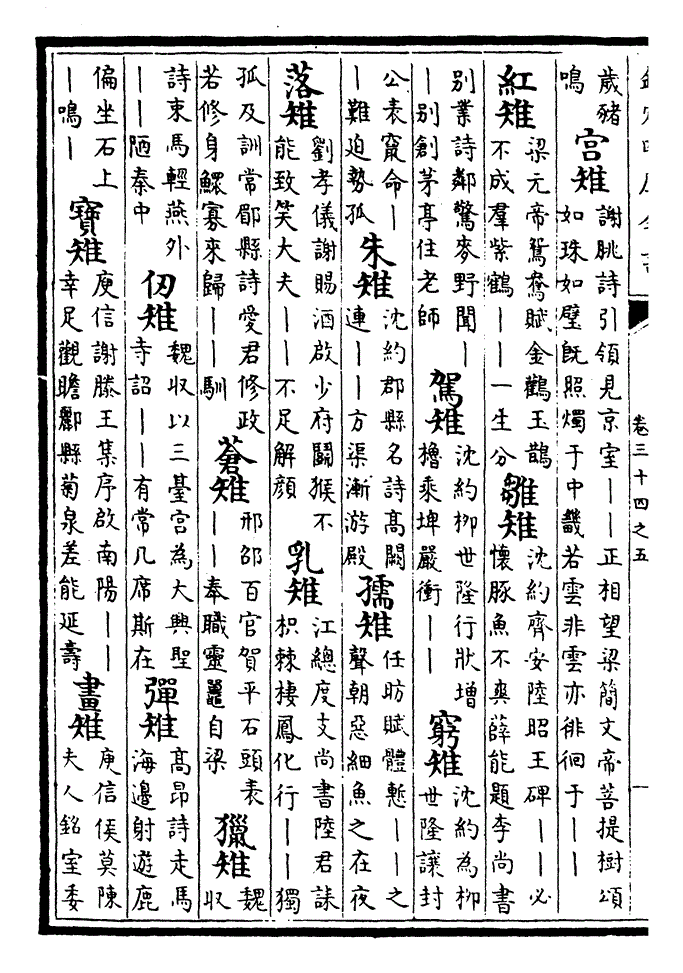 卷三十四之五
一
歲豬鳴 宮雉 謝脁詩引領見京室——正相望梁簡文帝菩提樹頌如珠如璧既照燭于中畿若雲非雲亦徘徊于——
紅雉 梁元帝鴛鴦賦金鸛玉鵲不成羣紫鶴——一生分 雛雉 沈約齊安陸昭王碑——必懷豚魚不爽薛能題李尚書
别業詩鄰驚麥野聞——别創茅亭住老師 駕雉 沈約柳世隆行狀增櫓乘埤嚴衝—— 窮雉 沈約為柳世隆讓封
公表竄命——難迫勢孤 朱雉 沈約郡縣名詩髙闕連——方渠漸游殿 孺雉 任昉賦體慙——之聲朝惡細魚之在夜
落雉 劉孝儀謝賜酒啟少府鬭猴不能致笑大夫——不足解顔 乳雉 江總度支尚書陸君誄枳棘棲鳳化行——獨
孤及訓常郿縣詩愛君修政若修身鰥寡來歸——馴 蒼雉 邢邵百官賀平石頭表——奉職靈鼉自梁 獵雉 魏收
詩束馬輕燕外——陋秦中 仞雉 魏收以三臺宫為大興聖寺詔——有常几席斯在 彈雉 髙昂詩走馬海邊射遊鹿
偏坐石上—鳴— 寶雉 庾信謝滕王集序啟南陽——幸足觀瞻酈縣菊泉差能延壽 畫雉 庾信侯莫陳夫人銘室委